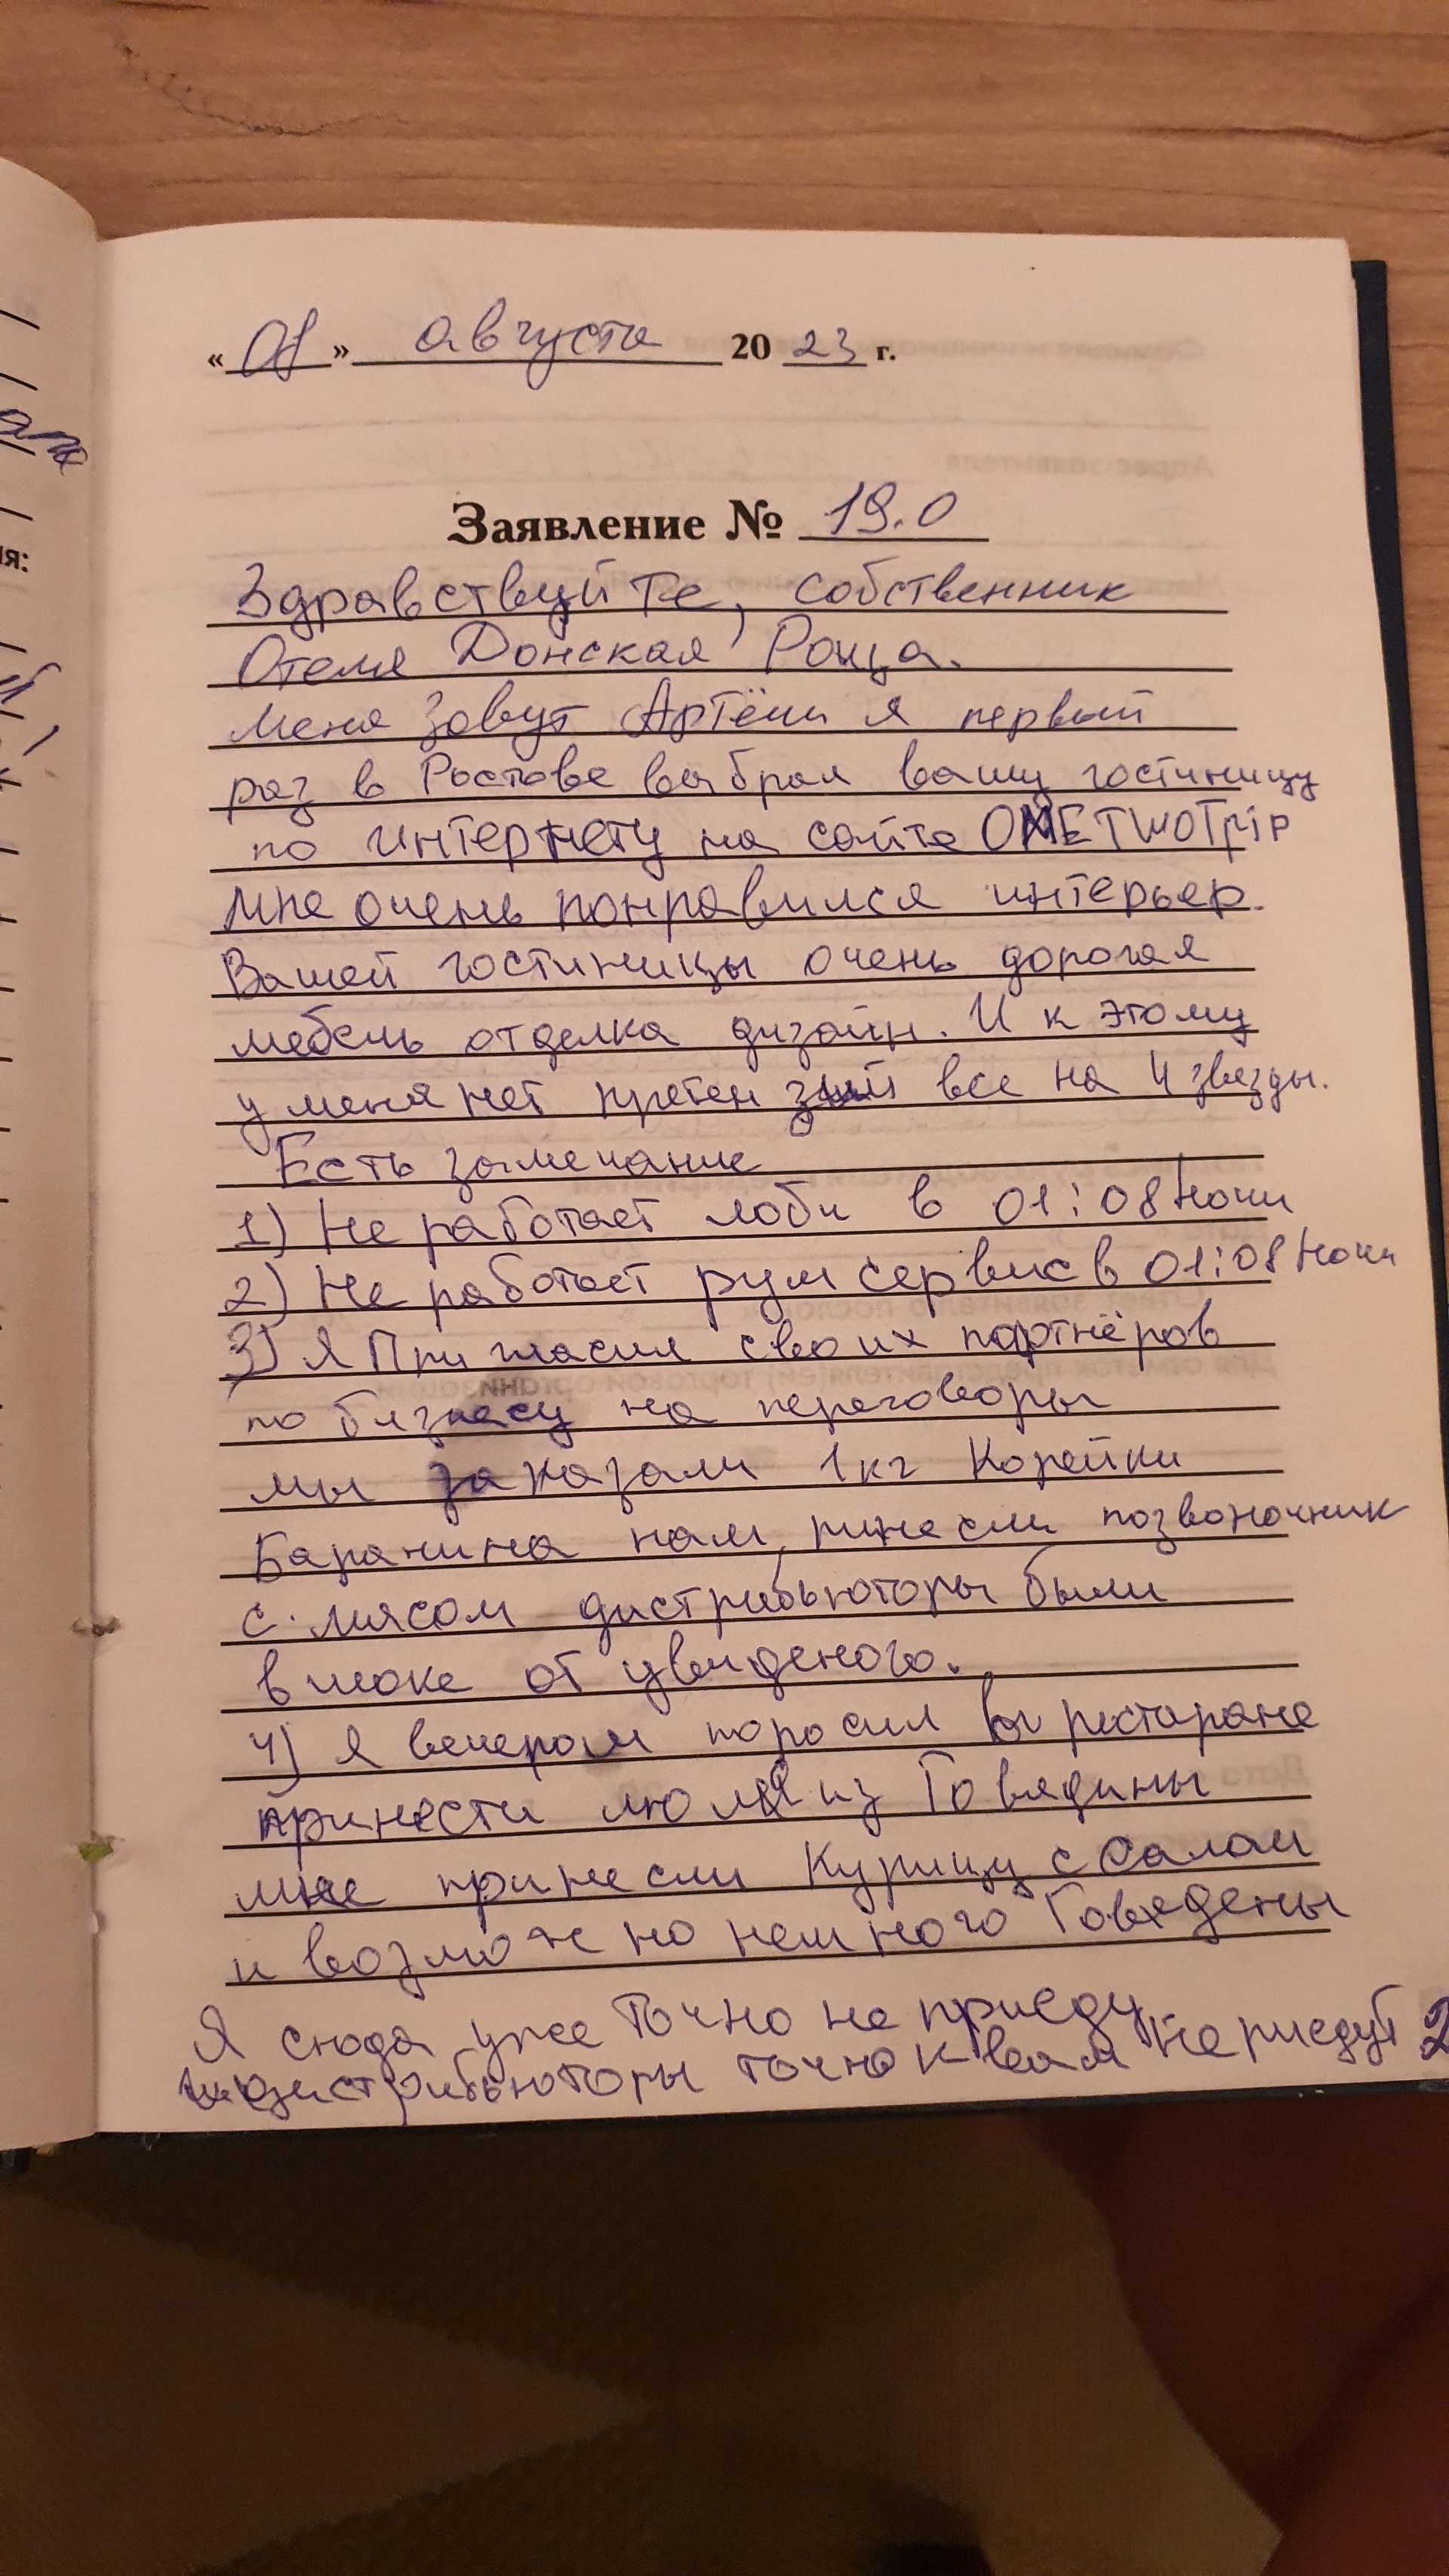 « 01 » августа 20 23 г.
Заявление № 19.0
Здравствуйте, собственник
Отеля Донская Роща.
Меня зовут Артём я первый
раз в Ростове выбрал вашу гостиницу
по интернету на сайте ONETWOTrip
мне очень понравился интерьер.
Вашей гостиницы очень дорогая
мебель отделка дизайн. И к этому
у меня нет претензий все на 4 звезды.
Есть замечание
1) Не работает лоби в 01:08 Ночи
2) Не работает рум сервис в 01:08 Ночи
3) Я Пригласил своих партнёров
по бизнесу на переговоры
мы заказали 1кг Корейки
Баранина нам принесли позвоночник
с мясом дистрибьюторы были
в шоке от увиденого.
4) Я вечером поросил в ресторане
принести люля из Говядины
мне принесли Курицу с Салом
и возможно немного Говядены
Я сюда уже Точно не приеду
дистрибьюторы точно к вам не риедут